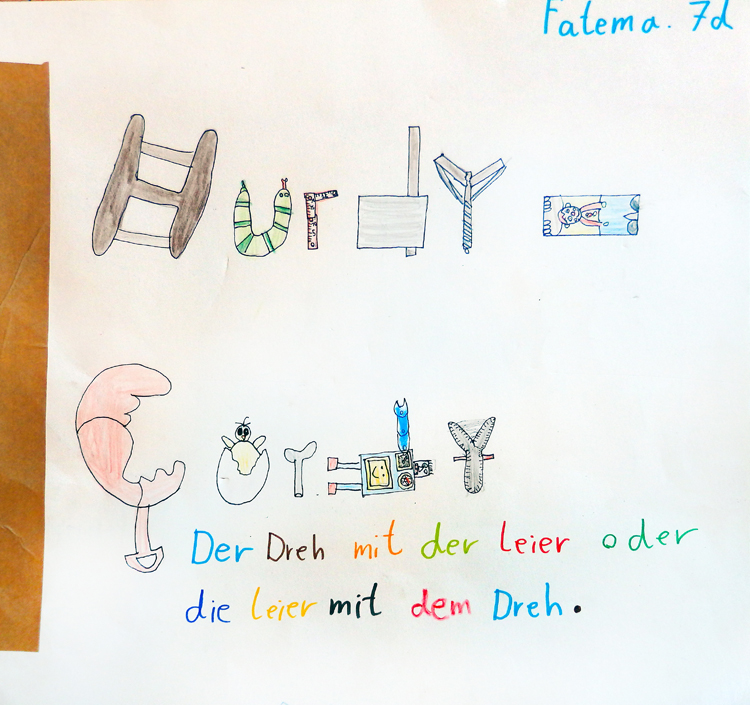 Fatema. 7d
Hurdy-
Gurdy
Der Dreh mit der Leier oder
die Leier mit dem Dreh.